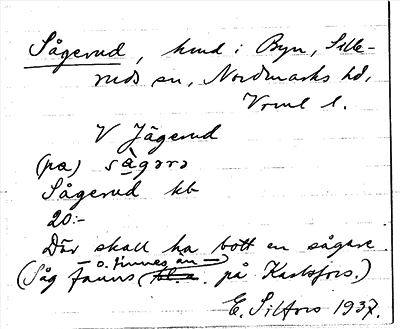 Sågerud, hmd i Byn, Sille-
ruds sn, Nordmarks hd,
Vrml l.
V Jägerud
(pa) sàgərə
Sågerud kb
20:-
Där skall ha bott en sågare.
o. finnes än
(Såg fanns på Karlsfors.)
E. Silfors 1937.